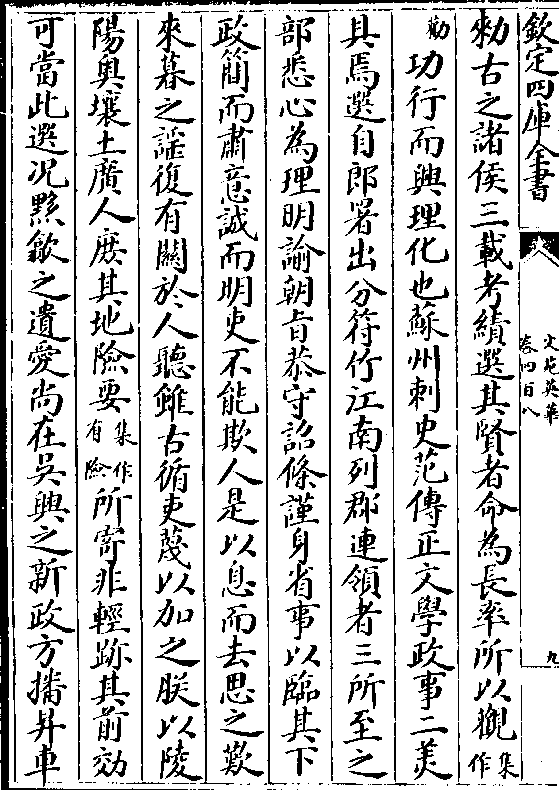 欽定四庫全書
文苑英華
卷四百八
九
勅古之諸侯三載考績選其賢者命為長率所以觀集作
勸功行而興理化也蘇州刺史范傳正文學政事二美
具焉選自郎署出分符竹江南列郡連領者三所至之
部悉心為理明諭朝旨恭守詔條謹身省事以臨其下
政簡而肅意誠而明吏不能欺人是以息而去思之歎
來暮之謡復有關於人聽雖古循吏蔑以加之朕以陵
陽奥壤土廣人庶其地險要集作有險所寄非輕跡其前効
可當此選况黟歙之遺愛尚在吳興之新政方播昇車